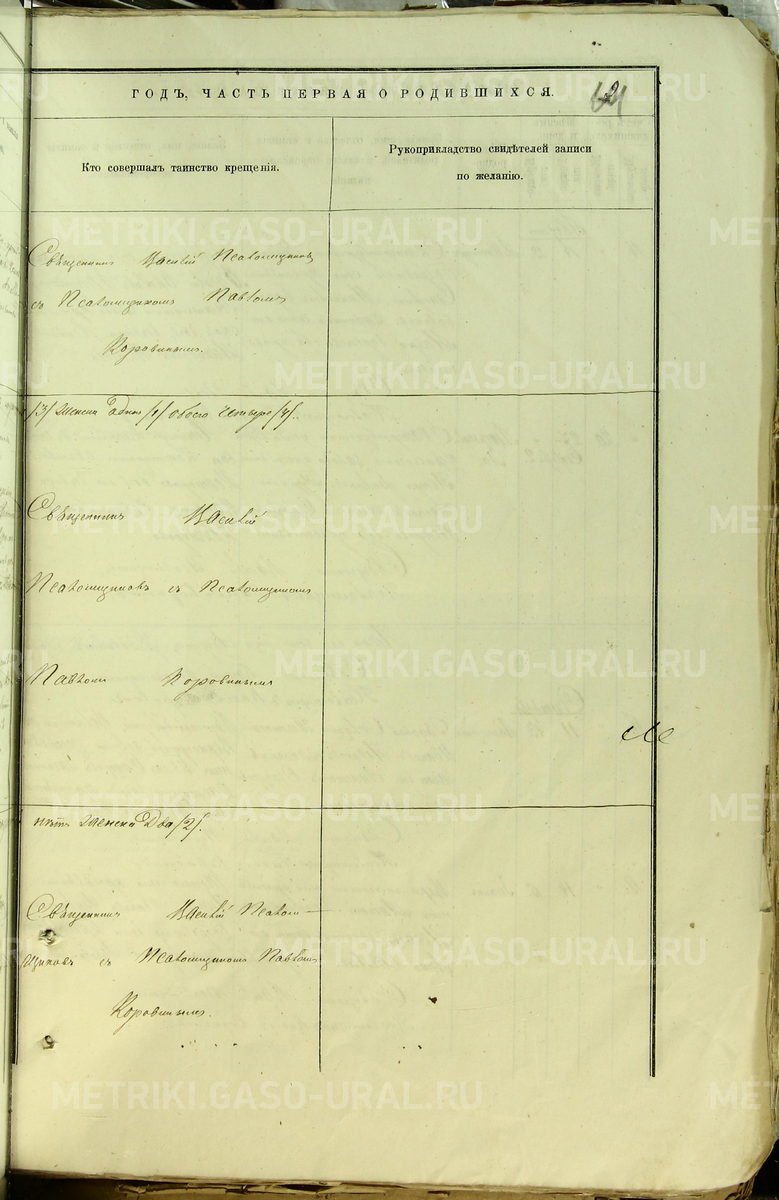 ГОДЪ, ЧАСТЬ ПЕРВАЯ О РОДИВШИХСЯ.
Кто совершалъ таинство крещенія.
Рукоприкладство свидѣтелей записи
по желанію.
Священникъ Василій Псаломщиковъ
съ Псаломщикомъ Павломъ
Коровинымъ.
/3/ женска одинъ /1/ обоего четыре /4/.
Священникъ Василій
Псаломщиковъ съ Псаломщикомъ
Павломъ Коровинымъ
нѣтъ женска два /2/.
Священникъ Василій Псалом-
щиковъ съ Псаломщикомъ Павломъ
Коровинымъ.
METRIKI.GASO-URAL.RU